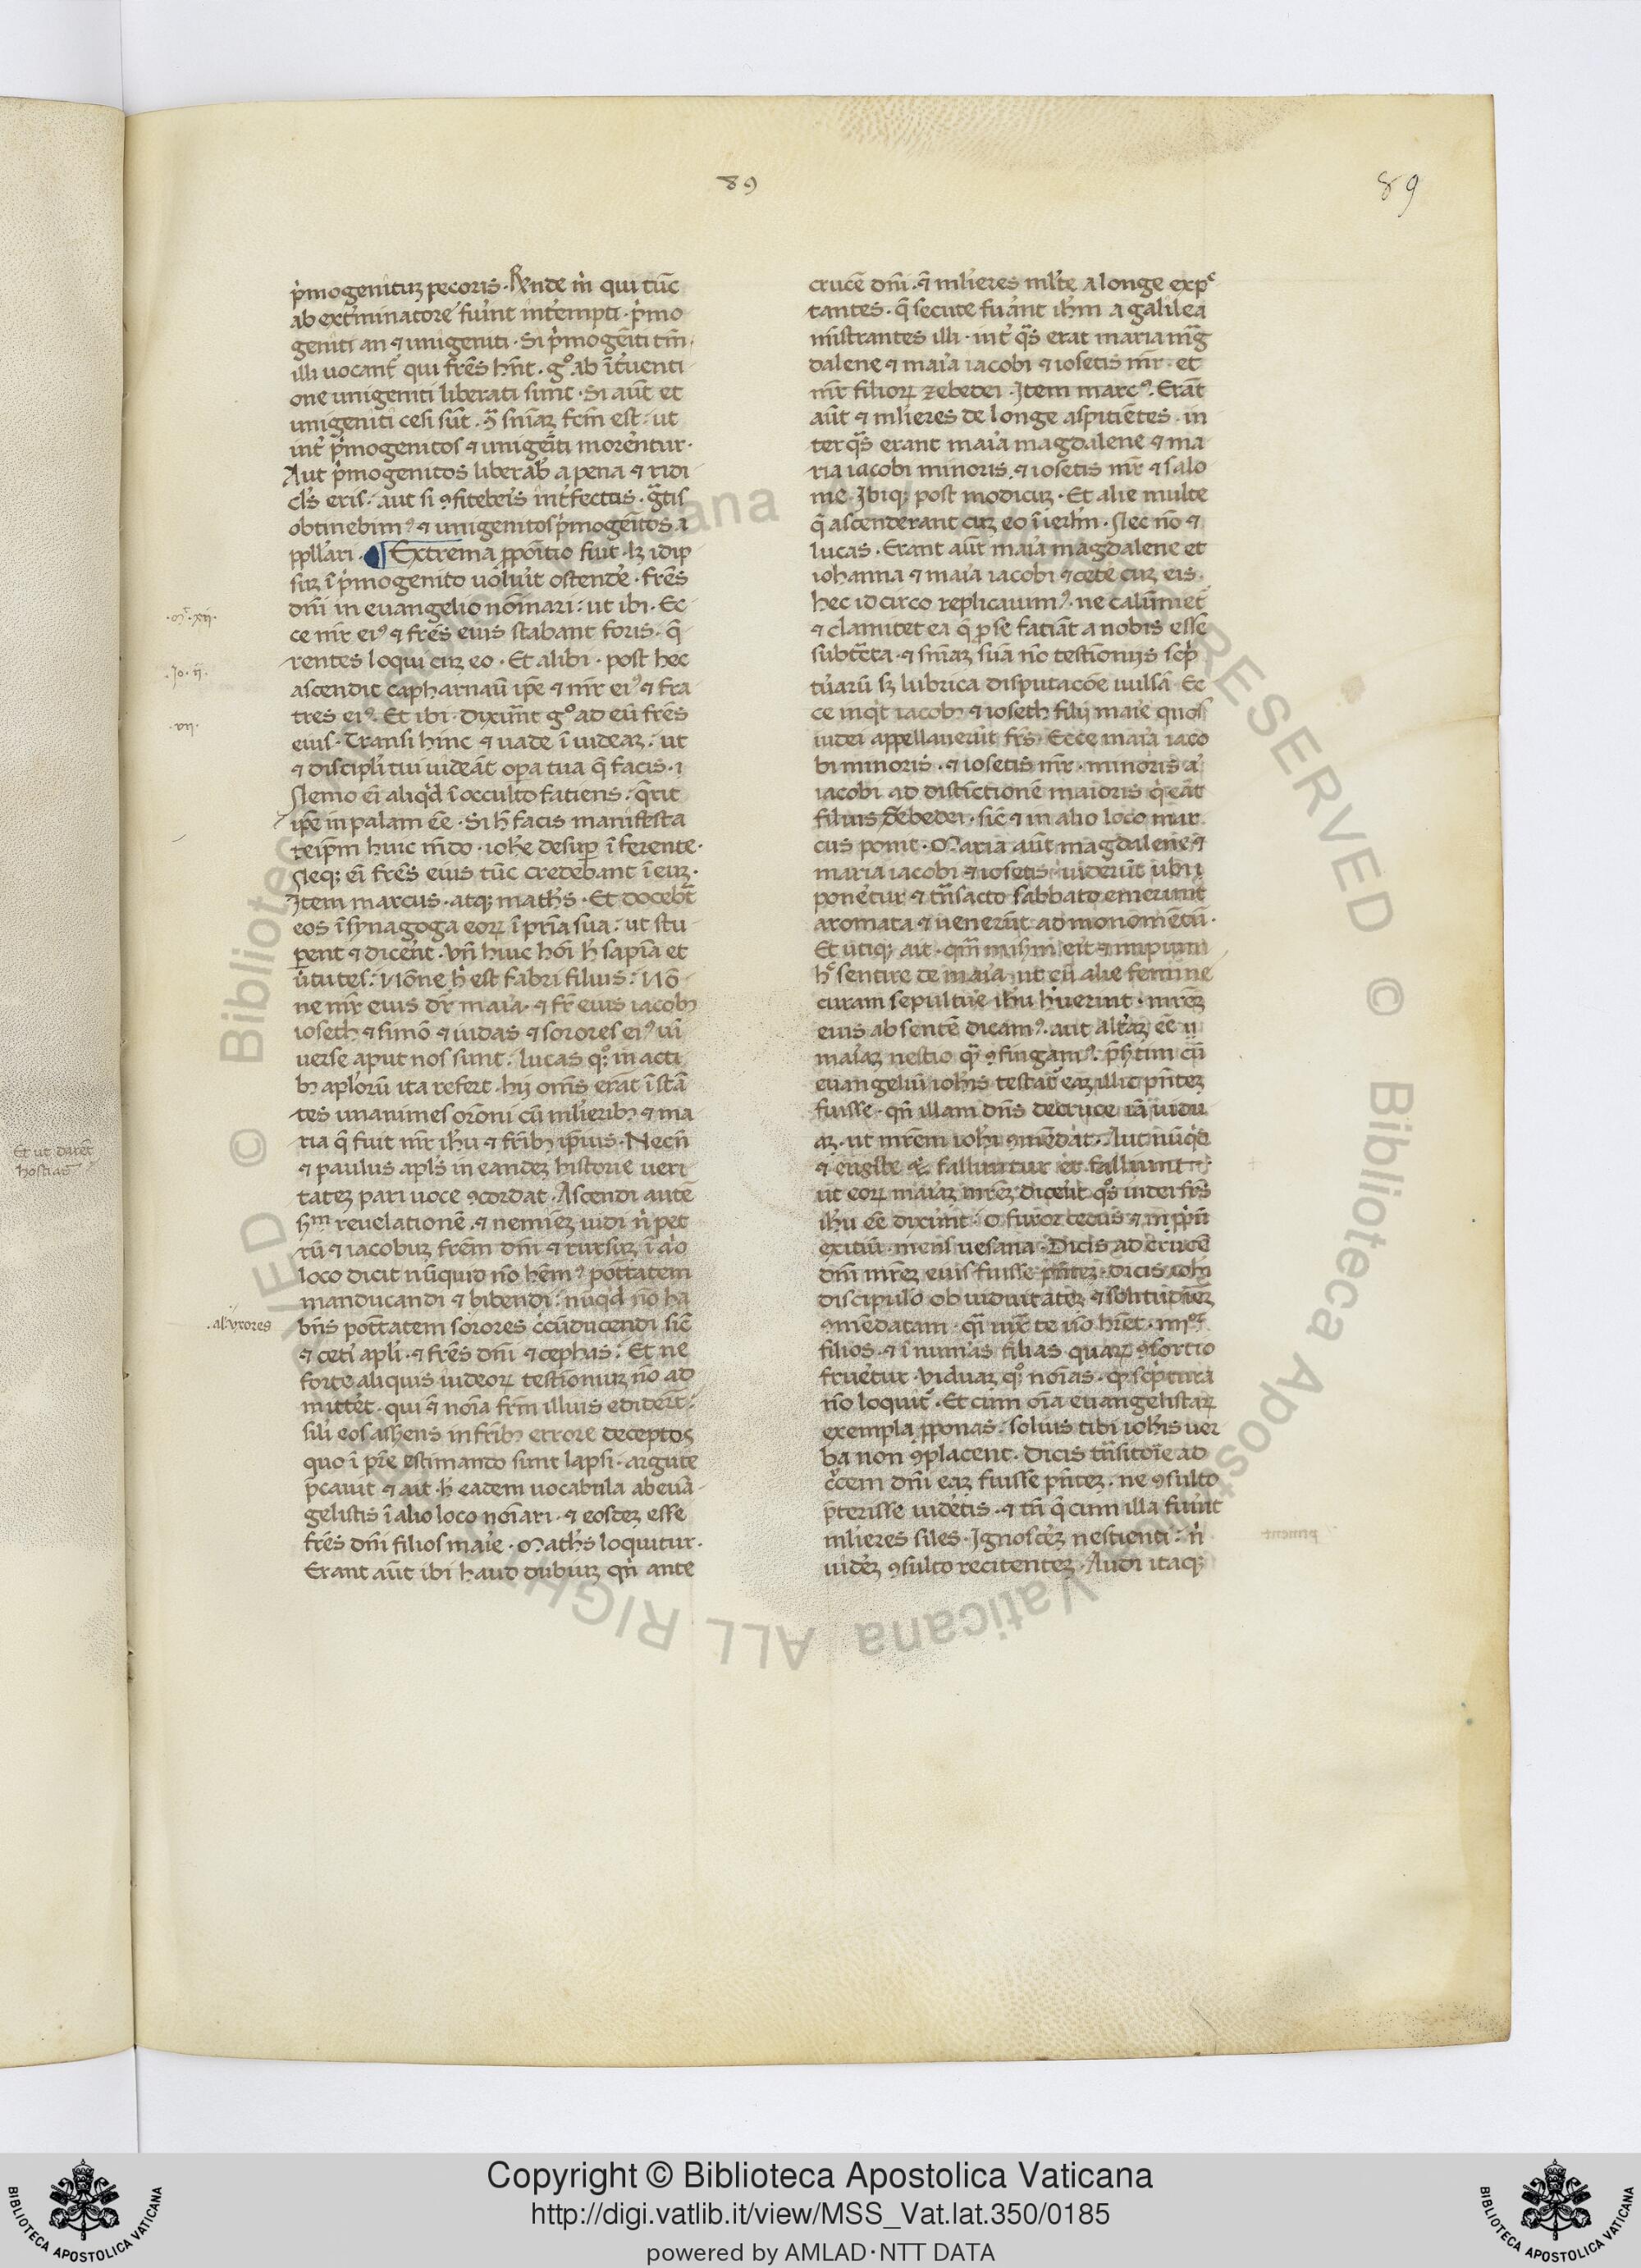 89
89
p̃mogenituꝫ pecoris. Rñde m̃ qui tũc
ab ext̃minatore fuĩnt int̃empti. p̃mo
geniti an ⁊ unigeniti. Si p̃mogẽiti tm̃.
illi uocant᷑ qui frẽs hñt. gͦ ab ĩt̃uenti
one unigeniti liberati sunt. Si aũt et
unigeniti cesi sũt. sñiaꝫ fcm̃ est. ut
int̃ p̃mogenitos ⁊ unigẽiti morẽntur.
Aut p̃mogenitos liberab̃ a pena ⁊ ridi
cl̃s eris. aut si ꝯfitebeĩs int̃fectus. g̃tis
obtinebimꝰ ⁊ unigenitos p̃mogẽitos ⁊
ppll̃ari. ¶ Extrema ꝓpõitio fuit. lꝫ idip
suꝫ ĩ p̃mogenito uoluĩt ostendẽ. frẽs
dñi in euangelio nõinari: ut ibi. Ec
ce mr̃ eiꝰ ⁊ frẽs euis stabant foris. q̃
rentes loqui cuꝫ eo. Et alibi. post hec
ascendit capharnaũ ip̃e ⁊ mr̃ eiꝰ ⁊ fra
tres eiꝰ. Et ibi. dixũnt gͦ ad eũ frẽs
euis. Transi hinc ⁊ uade ĩ iudeaꝫ. ut
⁊ discipl̃i tui uideãt opa tua q̃ facis.
Nemo eĩ aliqd̃ ĩ occulto fatiens: q̃rit
ip̃e in palam eẽ. Si h̃ facis manifesta
teip̃m huic mũdo. iohe desup̃ ĩferente.
Neqꝫ eĩ frẽs euis tũc credebant ĩ euꝫ.
Item marcus. atqꝫ math̃s. Et docebat
eos ĩ synagoga eoꝝ ĩ pr̃ia sua: ut stu
perent ⁊ dicẽnt. vñ huic hõi h̃ sapĩa et
ũtutes: Nõne h̃ est fabri filius: Nõ
ne mr̃ euis dr̃ maĩa. ⁊ fr̃ euis iacobꝫ
ioseth ⁊ simõ ⁊ iudas ⁊ sorores eiꝰ uĩ
uerse aput nos sunt: lucas qꝫ in acti
bꝫ apl̃orũ ita refert. hij oms̃ erãt ĩstã
tes unanimes orõni cũ ml̃ieribꝫ ⁊ ma
ria q̃ fuit mr̃ ihũ ⁊ frĩbꝫ ip̃uis. Necñ
⁊ paulus apl̃s in eandeꝫ historie ueri
tateꝫ pari uoce ꝯcordat. Ascendi autẽ
sᵐ reuelationẽ ⁊ nemĩeꝫ uidi ñ pet
rũ ⁊ iacobuꝫ frẽm dñi ⁊ rursuꝫ ĩ alio
loco dicit nũquid nõ hẽmꝰ potr̃atem
manducandi ⁊ bibendi: nũqd̃ nõ ha
bñs potr̃atem sorores c̃cũducendi sic̃
⁊ ceti apl̃i. ⁊ frẽs dñi ⁊ cephas: Et ne
forte aliquis iudeoꝝ testĩoniuꝫ nõ ad
mittẽt. qui ⁊ nõia frm̃ illius edidert:
sil̃i eos ash̃ens in frĩbꝫ errore deceptos
quo ĩ pr̃e estimando sunt lapsi. argute
p̃cauit ⁊ ait. h̃ eadem uocabula ab euã
gelistis ĩ alio loco nõiari. ⁊ eosdeꝫ esse
frẽs dñi filios maĩe. Math̃s loquitur.
Erant aũt ibi haud dubiuꝫ qñ ante
crucẽ dñi. ⁊ ml̃ieres ml̃te a longe expᶜ
tantes. q̃ secute fuãnt ihm̃ a galilea
mĩstrantes illi. int̃ q̃s erat maria mag
dalene ⁊ maĩa iacobi ⁊ iosetis mr̃. et
mr̃ filioꝝ zebedei. Item marcꝰ. Erãt
aũt ⁊ ml̃ieres de longe aspitiẽtes. in
ter q̃s erant maĩa magdalene ⁊ ma
ria iacobi minoris. ⁊ iosetis mr̃ ⁊ salo
me. Ibiqꝫ post modicuꝫ. Et alie multe
q̃ ascenderant cuꝫ eo ĩ ierl̃m. Nec nõ ⁊
lucas. Erant aũt maĩa magdalene et
iohanna ⁊ maĩa iacobi ⁊ cetẽ cuꝫ eis.
hec idcirco replicauimꝰ. ne calũmiet᷑
⁊ clamitet ea q̃ p se fatiãt a nobis esse
subtc̃ta. ⁊ sñiaꝫ suã nõ testimonijs scp̃
tũarũ sꝫ lubrica disputacõe uulsã Ec
ce inqt̃ iacobꝫ ⁊ ioseth filij maĩe quos
iudei appellauerũt fr̃s. Ecce maĩa iaco
bi minoris. ⁊ iosetis mr̃. minoris ã
iacobi ad distictionẽ maioris q̃ eãt
filius zebedei. sic̃ ⁊ in alio loco mar
cus ponit. Maria aũt magdalene ⁊
maria iacobi ⁊ iosetis uiderũt ubi
ponẽtur ⁊ tñsacto sabbato emerunt
aromata ⁊ uenerũt ad monomẽtũ.
Et utiqꝫ ait. qm̃ misũm eit ⁊ impium
h̃ sentire de maĩa. ut cũ alie femine
curam sepultũe ihũ h̃uerint. mr̃eꝫ
euis absentẽ dicamꝰ. aut alt̃aꝫ eẽ
maĩaꝫ nestio q̃ ꝯfingamꝰ. p̃sertim cũ
euangeliũ iohĩs testat᷑ eaꝫ illic pñteꝫ
fuisse. qñ illam dñs de cruce iã uidu
aꝫ. ut mr̃em iohĩ ꝯmẽdat. Aut nũqd̃
⁊ eũgeliste falluntur et fallunt nos
ut eoꝝ maĩaꝫ mr̃eꝫ dicẽnt qͦs iudei fr̃s
ihũ eẽ dixũnt. O furor cecus ⁊ in pp̃iũ
exitiũ mens uesana. Dicis ad crucẽ
dñi mr̃eꝫ euis fuisse pñteꝫ. dicis iohĩ
discipulo ob uiduitateꝫ ⁊ solitudĩeꝫ
ꝯmẽdatam. q̃i iux̃ te nõ hr̃et. iiiiᵒʳ
filios. ⁊ ĩ num̃as filias quaꝝ ꝯsortio
fruẽtur. Viduaꝫ qꝫ nõias. qꝫ scp̃tura
nõ loquit᷑. Et cum oĩa euangelistaꝝ
exempla ꝓponas. solius tibi iohĩs uer
ba non ꝯplacent. Dicis tñsitorie ad
c̃cem dñi eaꝫ fuisse pñteꝫ. ne ꝯsulto
p̃terisse uidẽris. ⁊ tñ q̃ cum illa fuĩnt
ml̃ieres siles. Ignoscẽꝫ nestienti: ñ
uidẽꝫ ꝯsulto recitenteꝫ. Audi itaqꝫ
.mr̃.xii.
.Jo.ii.
.vii.
Et ut darẽt
hostias
.al᷑ uxores
Copyright © Biblioteca Apostolica Vaticana
http://digi.vatlib.it/view/MSS_Vat.lat.350/0185
powered by AMLAD·NTT DATA
BIBLIOTECA APOSTOLICA VATICANA
BIBLIOTECA APOSTOLICA VATICANA